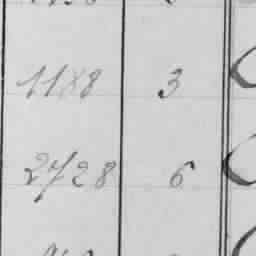 1188 3
2728 6